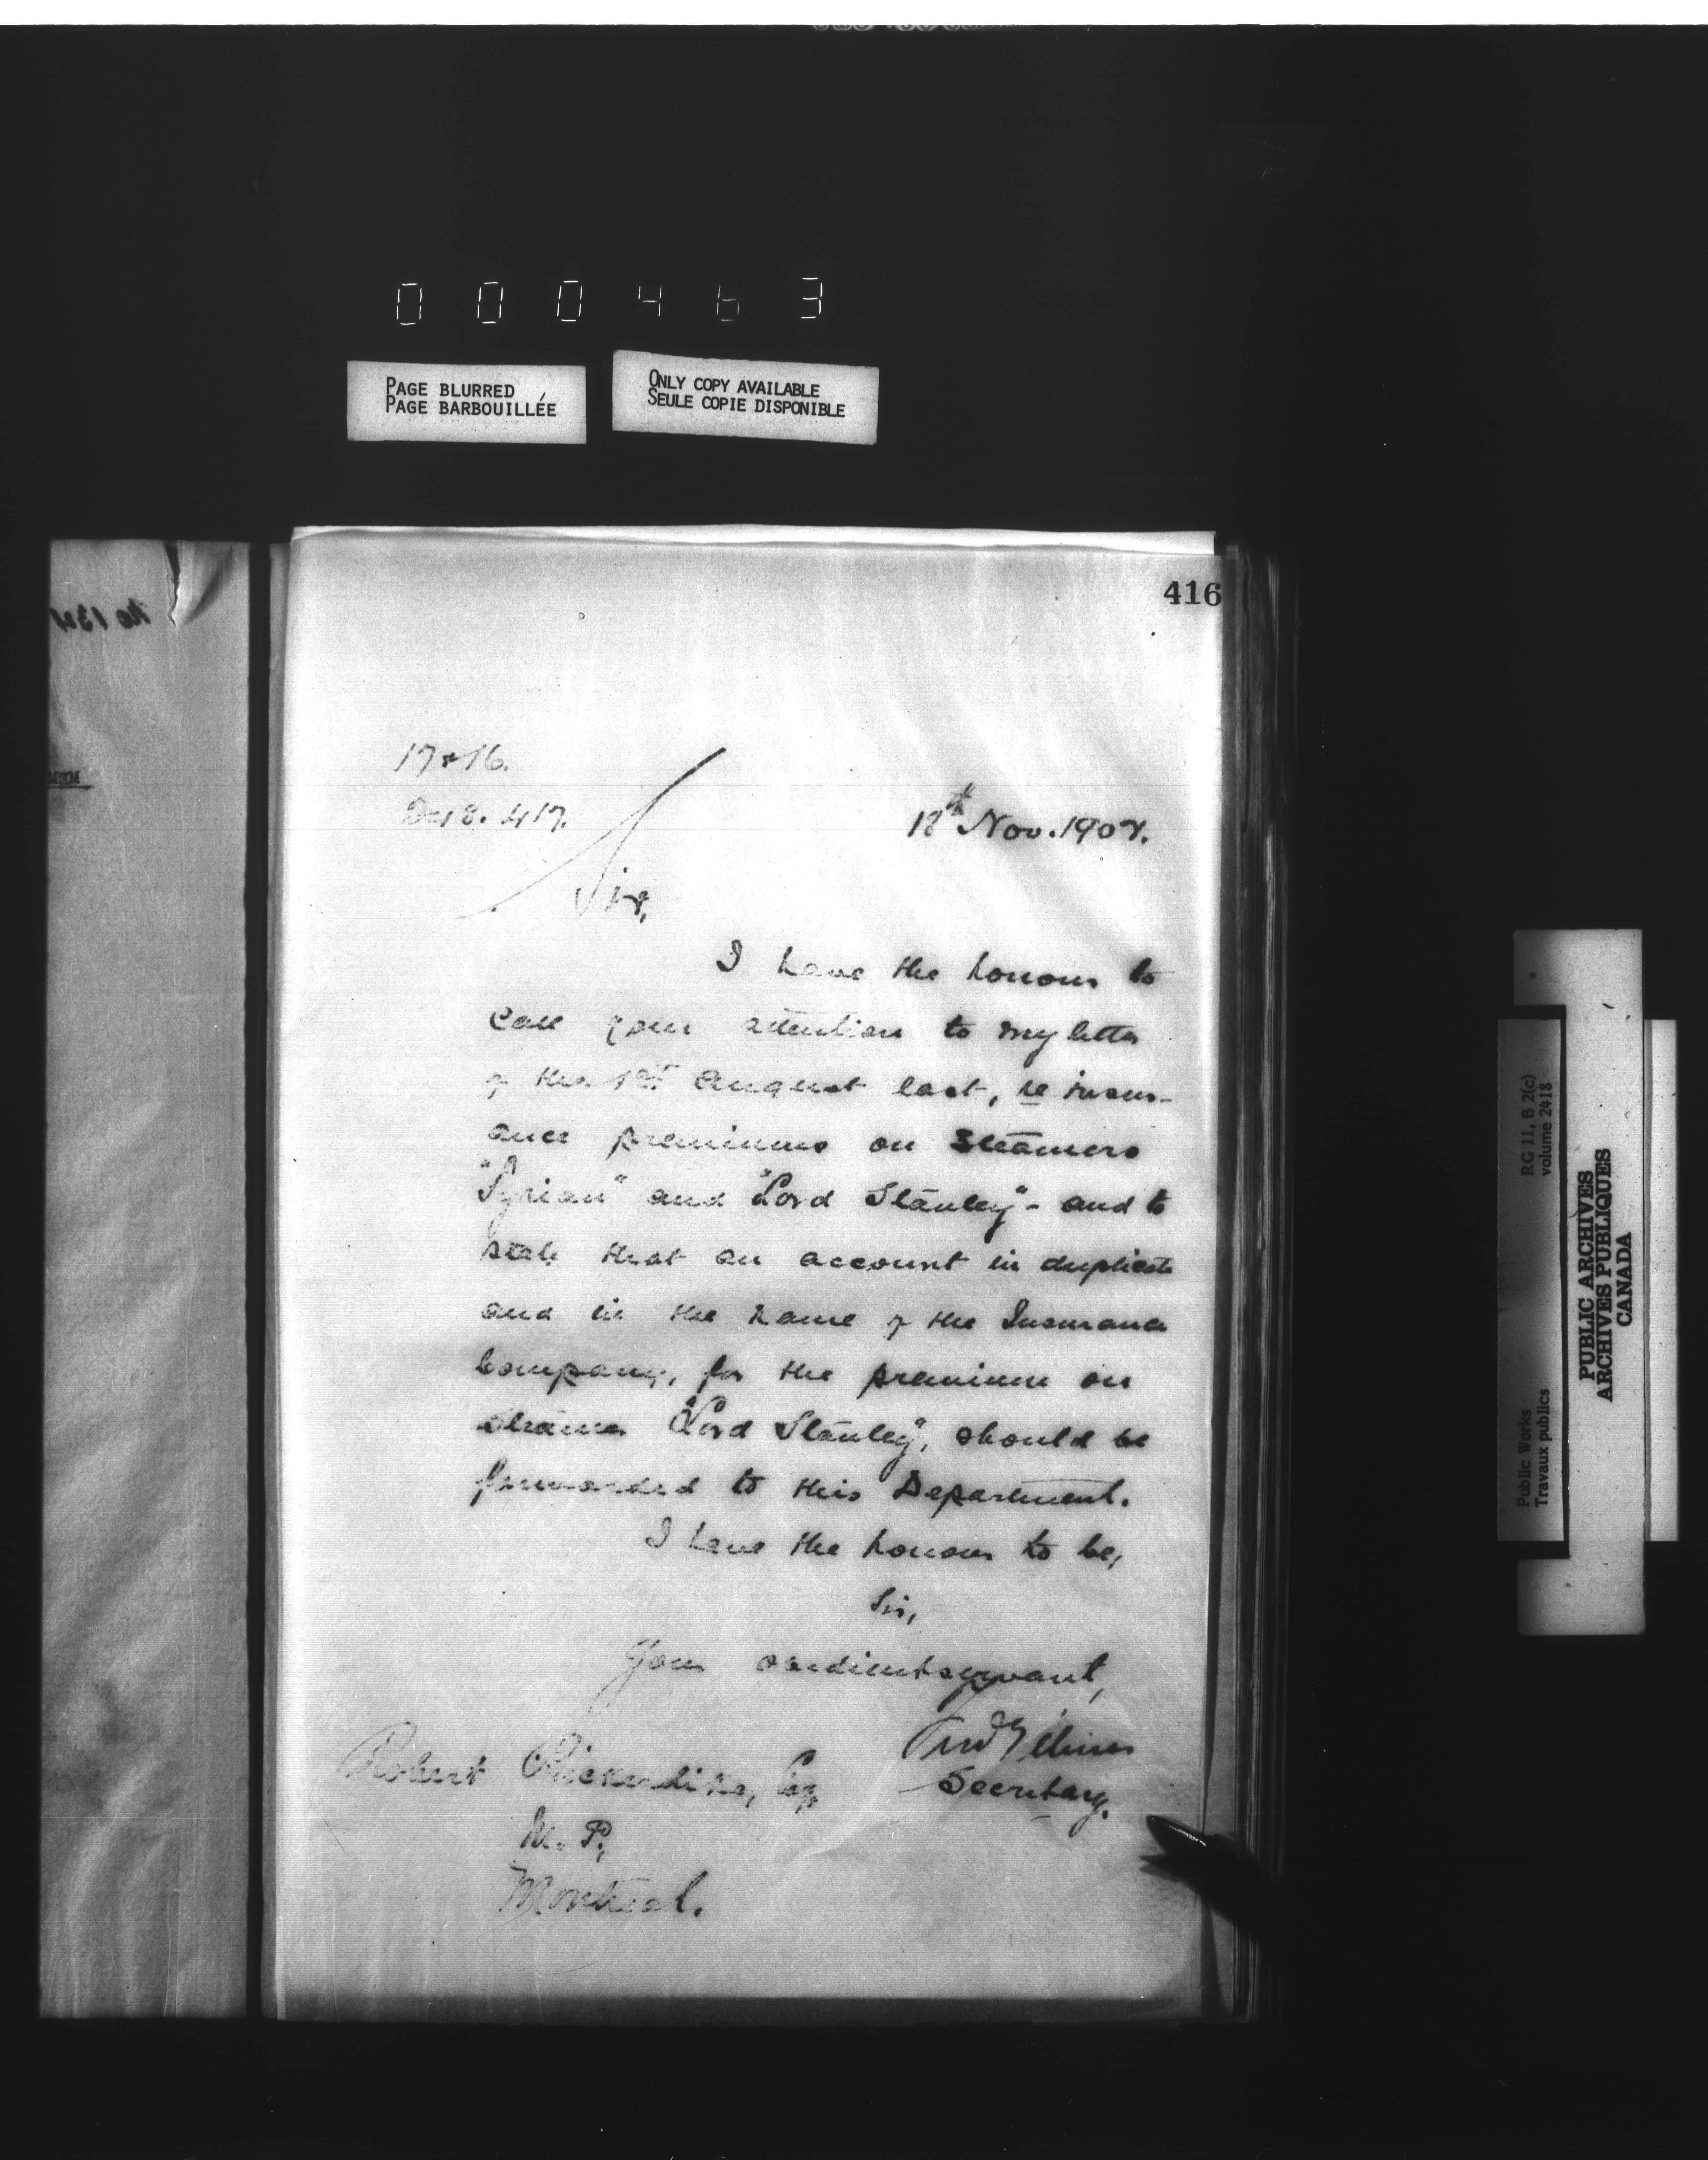 000463
PAGE BLURRED
PAGE BARBOUILLÉE
ONLY COPY AVAILABLE
SEULE COPIE DISPONIBLE
416
Sir,
I have the honour to
call your attention to my letter
of the 1st August last, re insur-
ance premiums on steamers
"Syrian" and "Lord Stanley" - and to
state that an account in duplicate
and in the name of the Insurance
Company, for the premium on
steamer "Lord Stanley", should be
forwarded to this Department.
I have the honour to be,
Sir,
Your obedient servant,
Secretary.
Robert Bickerdike, Esq.
M. P.,
Montreal.
RG 11, B 2(c)
volume 2418
Public Works
Travaux publics
PUBLIC ARCHIVES
ARCHIVES PUBLIQUES
CANADA